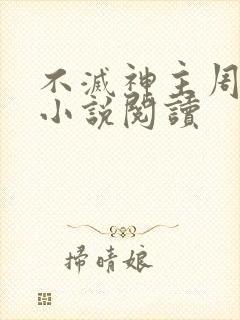 不滅神主周
小說閱讀
掃晴娘